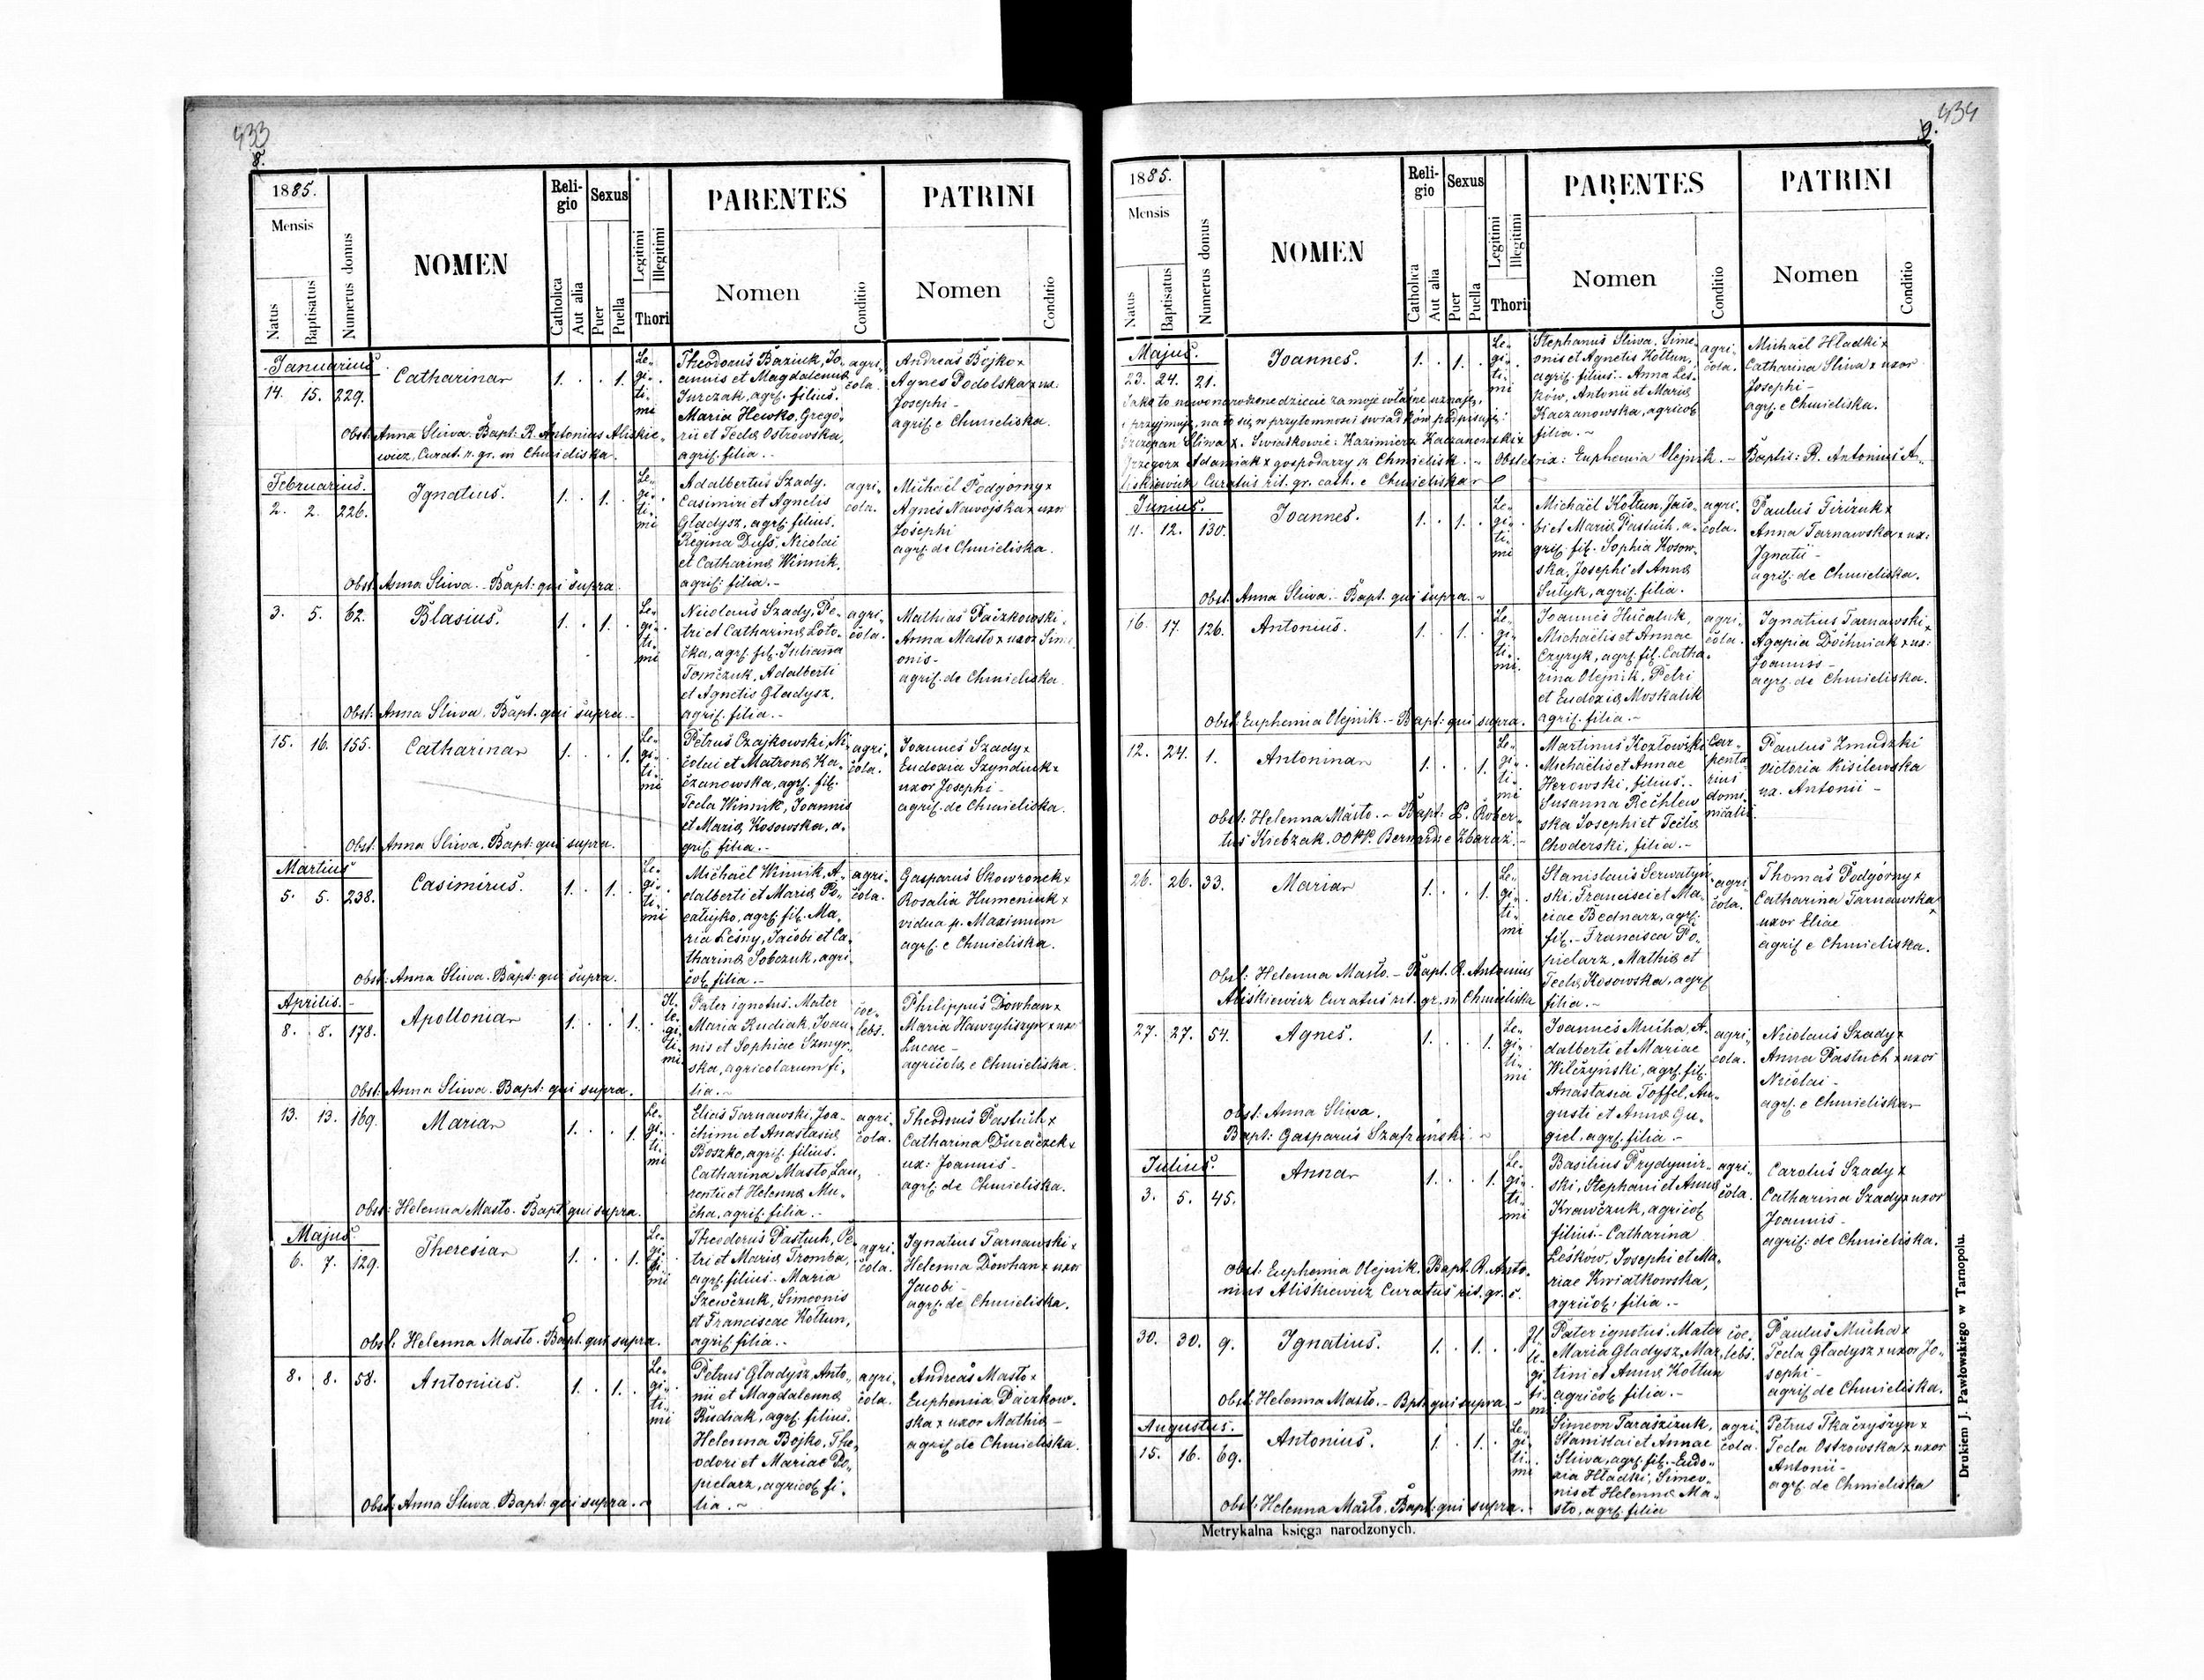 433
8.
1885.
Mensis
Natus
Baptisatus
Numerus domus
NOMEN
Reli-
gio
Catholica
Aut alia
Sexus
Puer
Puella
Legitimi
Illegitimi
Thori
PARENTES
Nomen
Conditio
PATRINI
Nomen
Conditio
Januarius
14. 15. 229.
Catharina
1. . . 1.
Le-
gi-
ti-
mi
Theodorus Baziuk, Jo-
annis et Magdalenae
Jurczak, agrί. filius.
Maria Hewko, Grego-
rii et Tecla Ostrowska,
agri. filia. -
agri-
cola.
Andreas Bojko x
Agnes Podolska x ux:
Josephi -
agri. e Chmieliska.
Obst: Anna Sliwa. Bapt: R. Antonius Aliskie-
wicz, Curat. r. gr. in Chmieliska.
Februarius.
2. 2. 226.
Ignatius.
1. . 1. .
Le-
gi-
ti-
mi
Adalbertus Szady,
Casimiri et Agnetis
Gladysz, agri. filius.
Regina Duss, Nicolai
et Catharina Winnik,
agri: filia. -
agri-
cola.
Michaël Podgorny x
Agnes Nawojska x uxor
Josephi
agri. de Chmieliska.
Obst: Anna Sliwa. - Bapt: qui supra.
3. 5. 62.
Blasius.
1. . 1. .
Le-
gi-
ti-
mi
Nicolaus Szady, Pe-
tri et Catharina Loto-
cka, agri. fil. Julianna
Tomczuk, Adalberti
et Agnetis Gladysz,
agri. filia. -
agri-
cola.
Mathias Paczkowski x
Anna Masto x uxor Sime
onis -
agri. de Chmieliska.
Obst: Anna Sliwa. Bapt. qui supra. -
15. 16. 155.
Catharina
1. . . 1.
Le-
gi-
ti-
mi
Petrus Czajkowski, Ni-
colai et Matrona Ka-
czanowska, agri. fil.
Tecla Winnik, Joannis
et Maria Kosowska, a-
gri. filia. -
agri-
cola.
Joannes Szady x
Eudoxia Szyndiuk x
uxor Josephi -
agri. de Chmieliska.
Obst: Anna Sliwa. Bapt: qui supra.
Martius
5. 5. 238.
Casimirus.
1. . 1. .
Le-
gi-
ti-
mi
Michaël Winnik, A-
dalberti et Maria Po-
catujko, agri. fil. Ma-
ria Lesny, Jacobi et Ca-
tharina Sobczuk, agri-
col. filia. -
agri-
cola.
Gasparus Skowronek x
Rosalia Humeniuk x
vidua p. Maximum
agri. e Chmieliska.
Obst: Anna Sliwa. Bapt: qui supra.
Aprilis. -
8. 8. 178.
Apollonia
1. . . 1.
Il-
le-
gi-
ti-
mi
Pater ignotus. Mater
Maria Rudiak, Joan-
nis et Sophiae Szmyr-
ska, agricolarum fi-
lia. -
coe-
lebs.
Philippus Dowhan x
Maria Hawryliszyn x uxor
Lucae -
agricola e Chmieliska.
Obst: Anna Sliwa. Bapt: qui supra.
13. 13. 169.
Maria
1. . . 1.
Le-
gi-
ti-
mi
Elias Tarnawski, Joa-
chimi et Anastasia
Boszko, agri. filius.
Catharina Masto, Lau-
rentii et Helena Mu-
cha, agri. filia. -
agri-
cola.
Theodorus Pastuch x
Catharina Duraczek x
ux: Joannis -
agri. de Chmieliska.
Obst: Helenna Masto. Bapt qui supra.
Majus
6. 7. 129.
Theresia
1. . . 1.
Le-
gi-
ti-
mi
Theodorus Pastuch, Pe-
tri et Maria Tromba,
agri. filius. - Maria
Szewczuk, Simeonis
et Franciscae Koltun,
agri. filia. -
agri-
cola.
Ignatius Tarnawski x
Helenna Dowhan x uxor
Jacobi -
agri. de Chmieliska.
Obst: Helenna Masto. Bapt. qui supra.
8. 8. 58.
Antonius.
1. . 1. .
Le-
gi-
ti-
mi
Petrus Gladysz, Anto-
nii et Magdalenna
Rudiak, agri. filius.
Helenna Bojko, The-
odori et Mariae Po-
pielarz, agricol. fi-
lia. -
agri-
cola.
Andreas Masto x
Euphemia Paczkow-
ska x uxor Mathia -
agri. de Chmieliska.
Obst: Anna Sliwa. Bapt: qui supra. -
434
9.
1885.
Mensis
Natus
Baptisatus
Numerus domus
NOMEN
Reli-
gio
Catholica
Aut alia
Sexus
Puer
Puella
Legitimi
Illegitimi
Thori
PARENTES
Nomen
Conditio
PATRINI
Nomen
Conditio
Majus.
23. 24. 21.
Joannes.
1. . 1. .
Le-
gi-
ti-
mi
Stephanus Sliwa, Sime-
onis et Agnetis Koltun,
agri. filius. - Anna Les-
ków, Antonii et Maria
Kaczanowska, agricol.
filia. -
agri-
cola.
Michaël Hladki x
Catharina Sliwa x uxor
Josephi -
agri. e Chmieliska.
Jako to nowonarodzone dziecie za moje własne uznaję,
i przyjmuję, na to się w przytomności świadków podpisuję:
Szczepan Sliwa x. Świadkowie: Kazimierz Kaczanowski x
Grzegorz Adamiak x gospodarzy z Chmielisk. - Obstetrix: Euphemia Olejnik. - Baptis: R. Antonius A-
liskiewicz Curatus rit. gr. cath. e Chmieliska
Junius.
11. 12. 130.
Joannes.
1. . 1. .
Le-
gi-
ti-
mi
Michaël Koltun, Jaco-
bi et Maria Pastuch, a-
gri. fil. Sophia Kosow-
ska, Josephi et Anna
Sutyk, agri. filia.
agri-
cola.
Paulus Firizuk x
Anna Tarnawska x ux:
Ignatii -
agri: de Chmieliska.
Obst: Anna Sliwa. - Bapt. qui supra. -
16. 17. 126.
Antonius.
1. . 1. .
Le-
gi-
ti-
mi.
Joannes Hucaluk,
Michaëlis et Annae
Czyryk, agri. fil. Catha-
rina Olejnik, Petri
et Eudoxia Moskalik
agri. filia. -
agri-
cola.
Ignatius Tarnawski x
Agapia Dochniak x ux:
Joannis -
agri. de Chmieliska.
Obst: Euphemia Olejnik. - Bapt: qui supra.
12. 24. 1.
Antonina
1. . . 1.
Le-
gi-
ti-
mi
Martinus Kozłowski
Michaëlis et Annae
Herowski, filius. -
Susanna Rechlew
ska Josephi et Tecla
Choderski, filia. -
Car-
penta-
rius
domi-
nicalis
Paulus Zmudzki
Victoria Kisilewska
ux. Antonii -
Obst: Helenna Masto. - Bapt: P. Rober-
tus Krebzak, OO. PP. Bernard: e Zbaraż. -
26. 26. 33.
Maria
1. . . 1.
Le-
gi-
ti-
mi
Stanislaus Serwatyn
ski, Francisci et Ma-
riae Bednarz, agri.
fil. - Francisca Po-
pielarz, Mathia et
Tecla Kosowska, agri.
filia. -
agri-
cola.
Thomas Podgórny x
Catharina Tarnawska x
uxor Eliae
agri. e Chmieliska.
Obst: Helenna Masto. - Bapt. R. Antonius
Aliskiewicz Curatus rit. gr. in Chmieliska
27. 27. 54.
Agnes.
1. . . 1.
Le-
gi-
ti-
mi
Joannes Mucha, A-
dalberti et Mariae
Wilczynski, agri. fil.
Anastasia Toffel, Au-
gusti et Anna Gu-
giel, agri. filia. -
agri-
cola.
Nicolaus Szady x
Anna Pastuch x uxor
Nicolai -
agri. e Chmieliska
Obst: Anna Sliwa.
Bapt: Gasparus Szafrański. -
Julius.
3. 5. 45.
Anna
1. . . 1.
Le-
gi-
ti-
mi
Basilius Prydymir-
ski, Stephani et Anna
Krawczuk, agricol.
filius. - Catharina
Leśków, Josephi et Ma-
riae Kwiatkowska,
agricol. filia. -
agri-
cola.
Carolus Szady x
Catharina Szady x uxor
Joannis -
agri: de Chmieliska.
Obst: Euphemia Olejnik. Bapt. R. Anto-
nius Aliskiewicz Curatus rit. gr. c.
30. 30. 9.
Ignatius.
1. . 1. .
Il-
le-
gi-
ti-
mi
Pater ignotus. Mater
Maria Gladysz, Mar-
tini et Anna Koltun
agricol. filia. -
coe-
lebs.
Paulus Mucha x
Tecla Gladysz x uxor Jo-
sephi -
agri. de Chmieliska.
Obst: Helenna Masto. - Bpt: qui supra. -
Augustus.
15. 16. 69.
Antonius.
1. . 1. .
Le-
gi-
ti-
mi
Simeon Taraszczuk,
Stanislai et Annae
Sliwa, agri. fil. - Eudo-
xia Hladki, Simeo-
nis et Helenna Ma-
sto, agri. filia
agri-
cola.
Petrus Tkaczyszyn x
Tecla Ostrowska x uxor
Antonii -
agri. de Chmieliska
Obst: Helenna Masto. Bapt: qui supra.
Metrykalna księga narodzonych.
Drukiem J. Pawłowskiego w Tarnopolu.